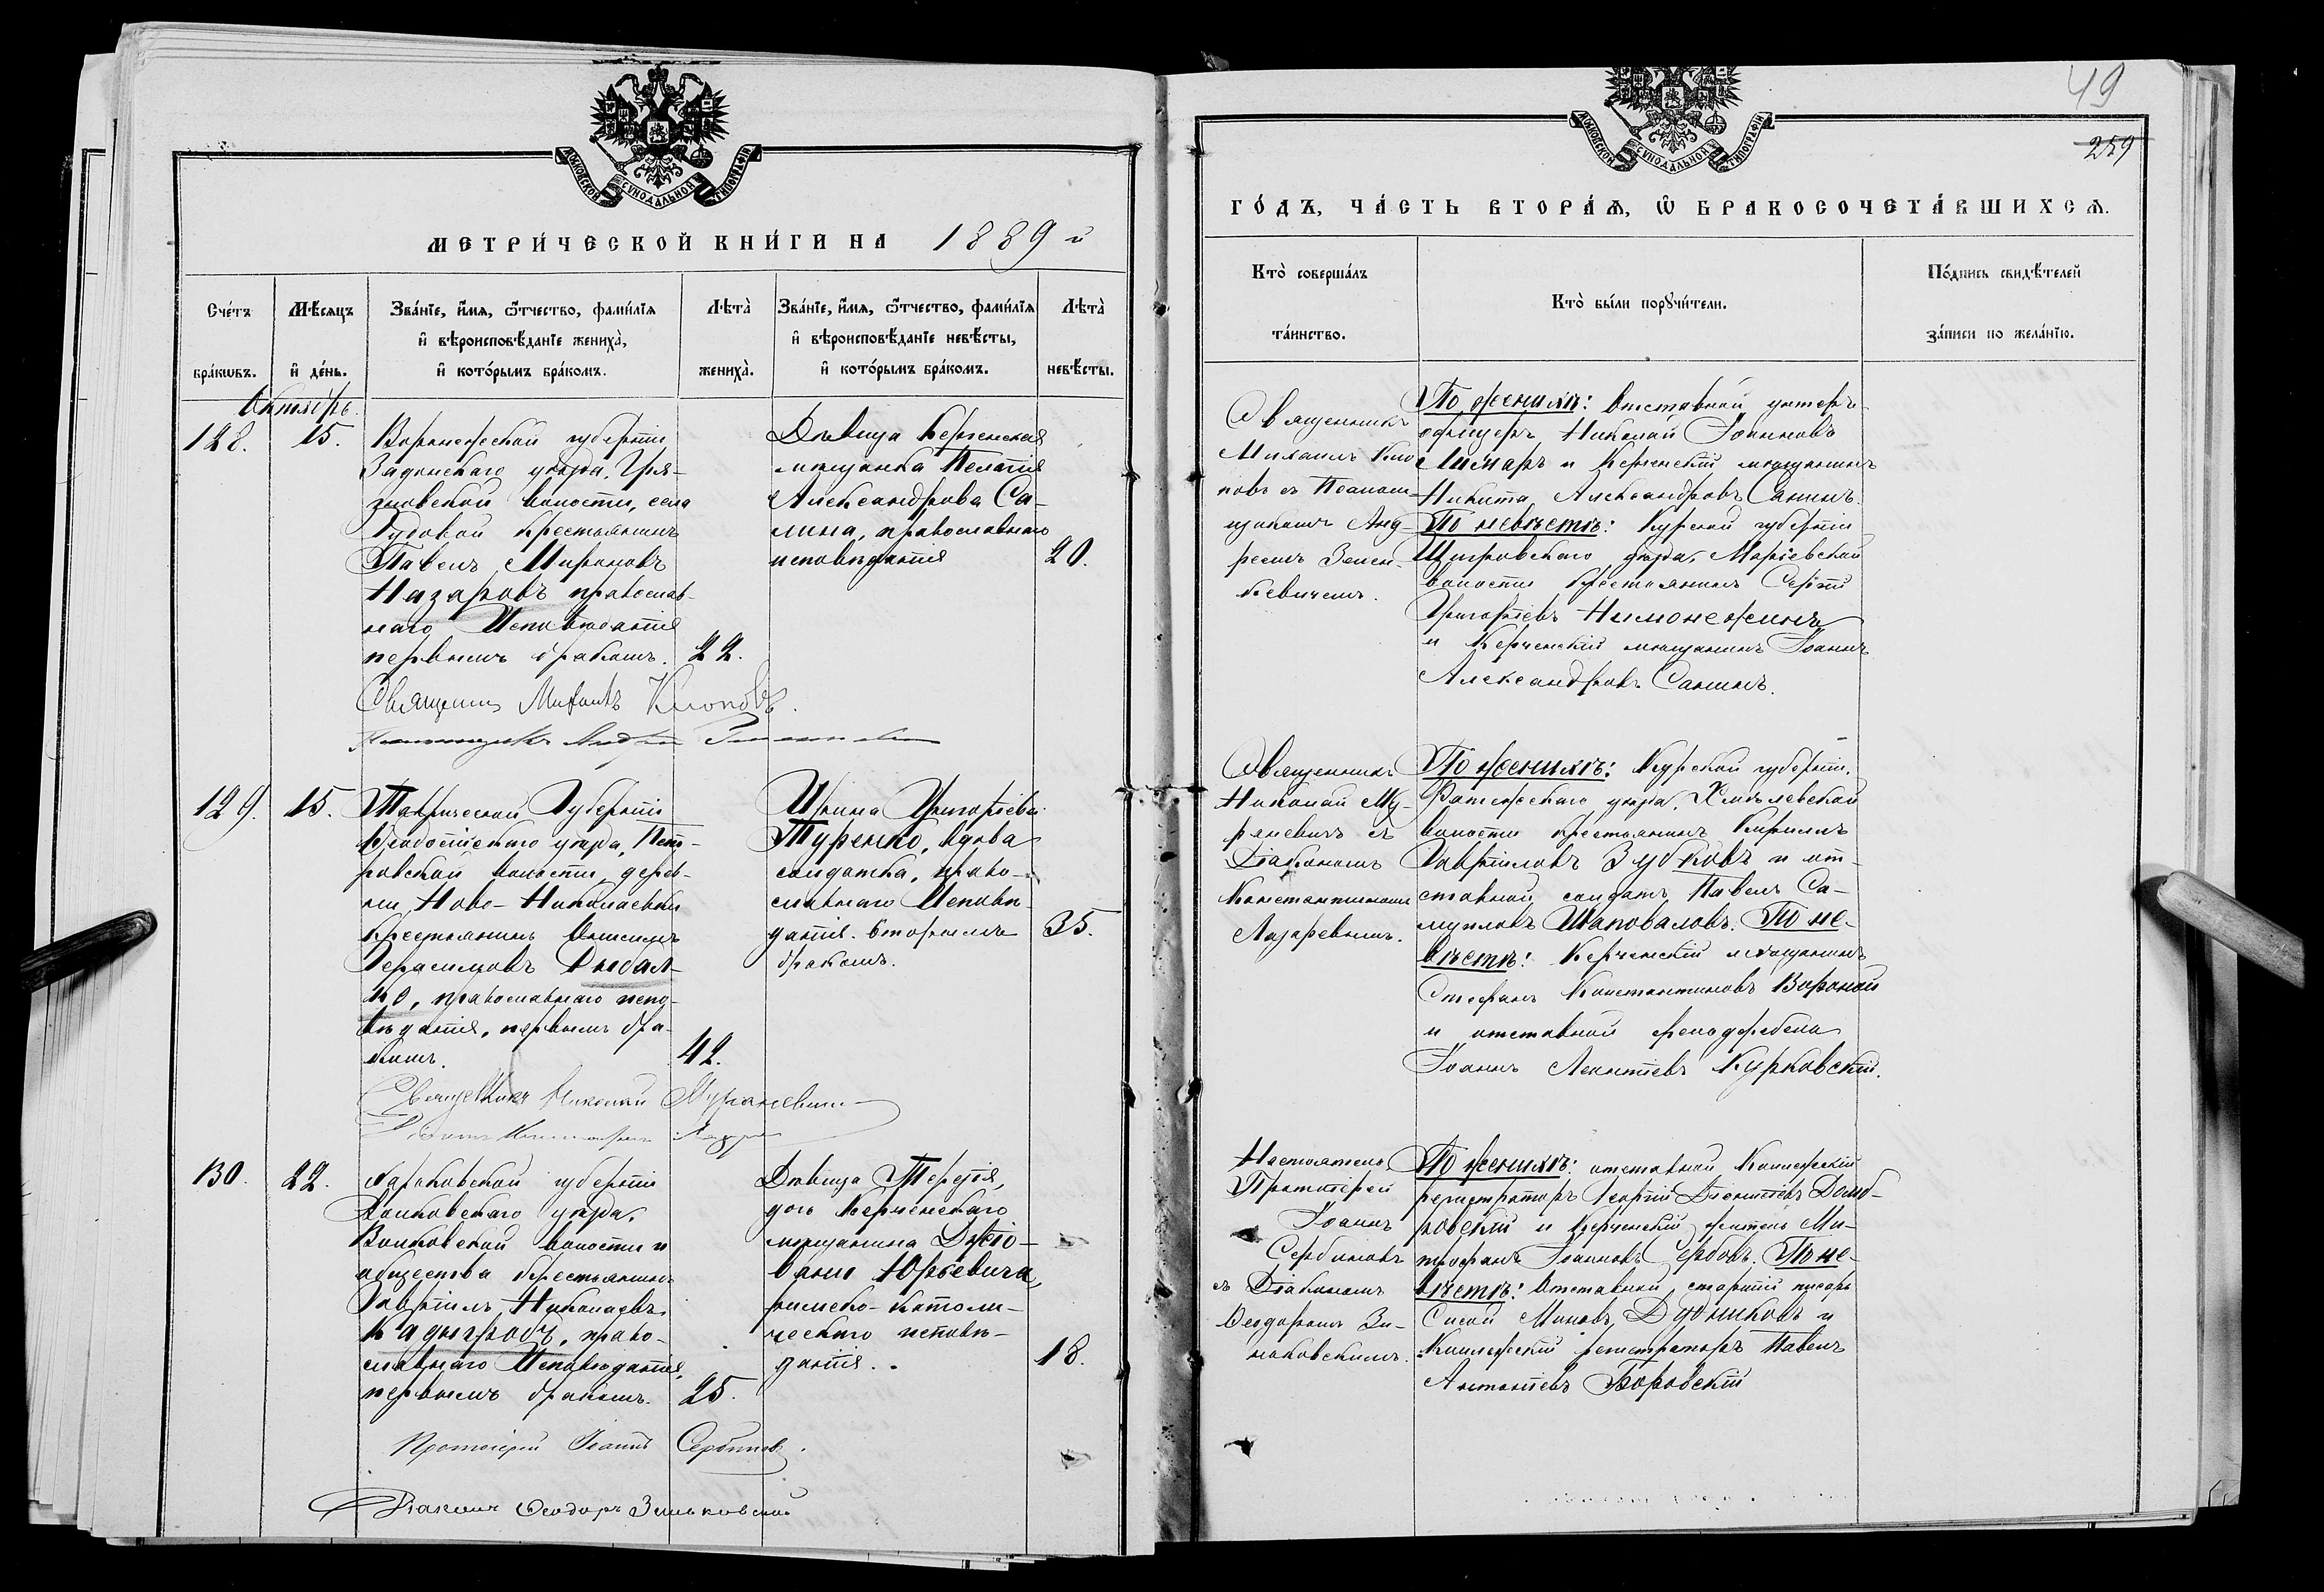 МОСКОВСКОЙ СѴНОДАЛЬНОЙ ТИПОГРАФІИ
МЕТРИ́ЧЕСКОЙ КНИ́ГИ НА 1889 й
Сче́тъ бра́кѡвъ.
Мѣ́сяцъ и҆ де́нь.
Зва́нїе, и҆́мѧ, ѻ҆́тчество, фами́лїѧ
и҆ вѣроисповѣ́данїе жениха̀,
и҆ кото́рымъ бра́комъ.
Лѣта̀ жениха̀.
Зва́нїе, и҆́мѧ, ѻ҆́тчество, фами́лїѧ
и҆ вѣроисповѣ́данїе невѣ́сты,
и҆ кото́рымъ бра́комъ.
Лѣта̀ невѣ́сты.
Октябрь.
128.
15.
Воронежской губерніи
Задонскаго уѣзда, Гря-
зновской волости, села
крестьянинъ
Павелъ Мироновъ
Назаровъ православ-
наго Исповѣданія
первымъ бракомъ.
22.
Дѣвица Керченская
мѣщанка Пелагія
Александрова Са-
нина, православнаго
исповѣданія
20.
Священникъ Михаилъ Клоповъ.
Псаломщикъ Андрей
129.
15.
Таврической Губерніи
Ѳеодосійскаго уѣзда, Пет-
ровской волости, дерев-
ни Ново-Николаевки
крестьянинъ
Герасимовъ
ко, православнаго испо-
вѣданія, первымъ бра-
комъ.
42.
Ирина Григоріева
Туренко, вдова
солдатка, право-
славнаго Исповѣ-
данія. вторымъ
бракомъ.
35.
Священникъ Николай Мураневичъ
130.
22.
Харьковской губерніи
Волковскаго уѣзда,
Волковской волости и
общества крестьянинъ
Гавріилъ Николаевъ
право-
славнаго Исповѣданія,
первымъ бракомъ.
25.
Дѣвица Терезія,
дочь Керченскаго
мѣщанина Джіо-
вани Юрьевича,
римско-католи-
ческаго исповѣ-
данія.
18.
Протоіерей Іоаннъ Сербиновъ.
Діаконъ Ѳеодоръ Зеньковскій
49
259
МОСКОВСКОЙ СѴНОДАЛЬНОЙ ТИПОГРАФІИ
ГО́ДЪ, ЧА́СТЬ ВТОРА́Ѧ, Ѡ҆ БРАКОСОЧЕТА́ВШИХСѦ.
Кто̀ соверша́лъ
та́инство.
Кто̀ бы́ли порꙋчи́тели.
По́дпись свидѣ́телей
за́писи по жела́нїю.
Священникъ
Михаилъ Кло-
повъ съ Псалом-
щикомъ Анд-
реемъ Зенен-
кевичемъ.
По женихѣ: Отставной унтеръ-
офицеръ Николай Іоанновъ
и Керченскій мѣщанинъ
Никита Александровъ Санинъ.
По невѣстѣ: Курской губерніи
Щигровскаго уѣзда, Маріевской
волости крестьянинъ Сергѣй
Григорьевъ
и Керченскій мѣщанинъ Іоаннъ
Александровъ Санинъ.
Священникъ
Николай Му-
раневичъ съ
Діакономъ
Константиномъ
Лазаревымъ.
По женихѣ: Курской губерніи,
Фатежскаго уѣзда, Хмѣлевской
волости крестьянинъ Кириллъ
Гавріиловъ Зубковъ и от-
ставной солдатъ Павелъ Са-
муиловъ Шаповаловъ. По не-
вѣстѣ: Керченскій мѣщанинъ
Стефанъ Константиновъ Вороной
и отставной фельдфебель
Іоаннъ Леонтіевъ Курковскій.
Настоятель
Протоіерей
Іоаннъ
Сербиновъ
съ Діакономъ
Ѳеодоромъ Зи-
наковскимъ.
По женихѣ: отставной Коллежскій
регистраторъ Георгій Діонисіевъ Домб-
ровскій и Керченскій житель Ми-
трофанъ Іоанновъ Сербовъ. По не-
вѣстѣ: Отставной старшій писарь
Сисой Миновъ и
Коллежскій регистраторъ Павелъ
Антоніевъ Боровскій